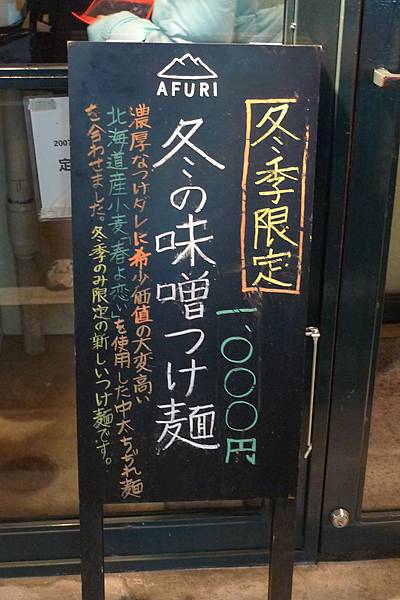 AFURI
冬季限定
冬の味噌つけ麺
一、〇〇〇円
濃厚なつけダレに希少価値の大変高い
北海道産小麦「春よ恋」を使用した中太ちぢれ麺
を合わせました。冬季のみ限定の新しいつけ麺です。
2007
定